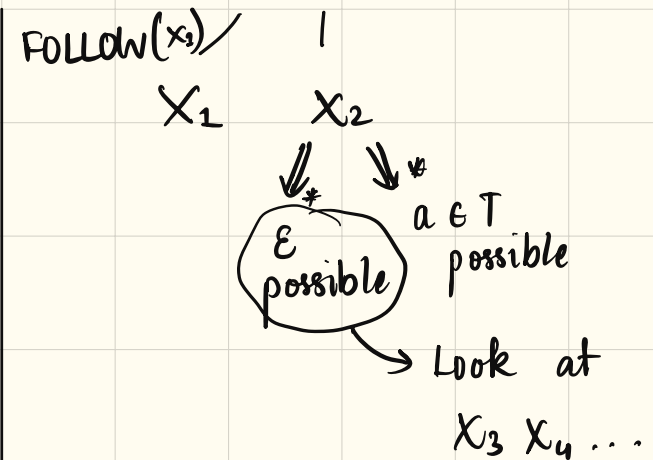 FOLLOW(X₁)
X₁ X₂
⇓* ⇓*
ε a ∈ T
possible possible
Look at
X₃ X₄ ...